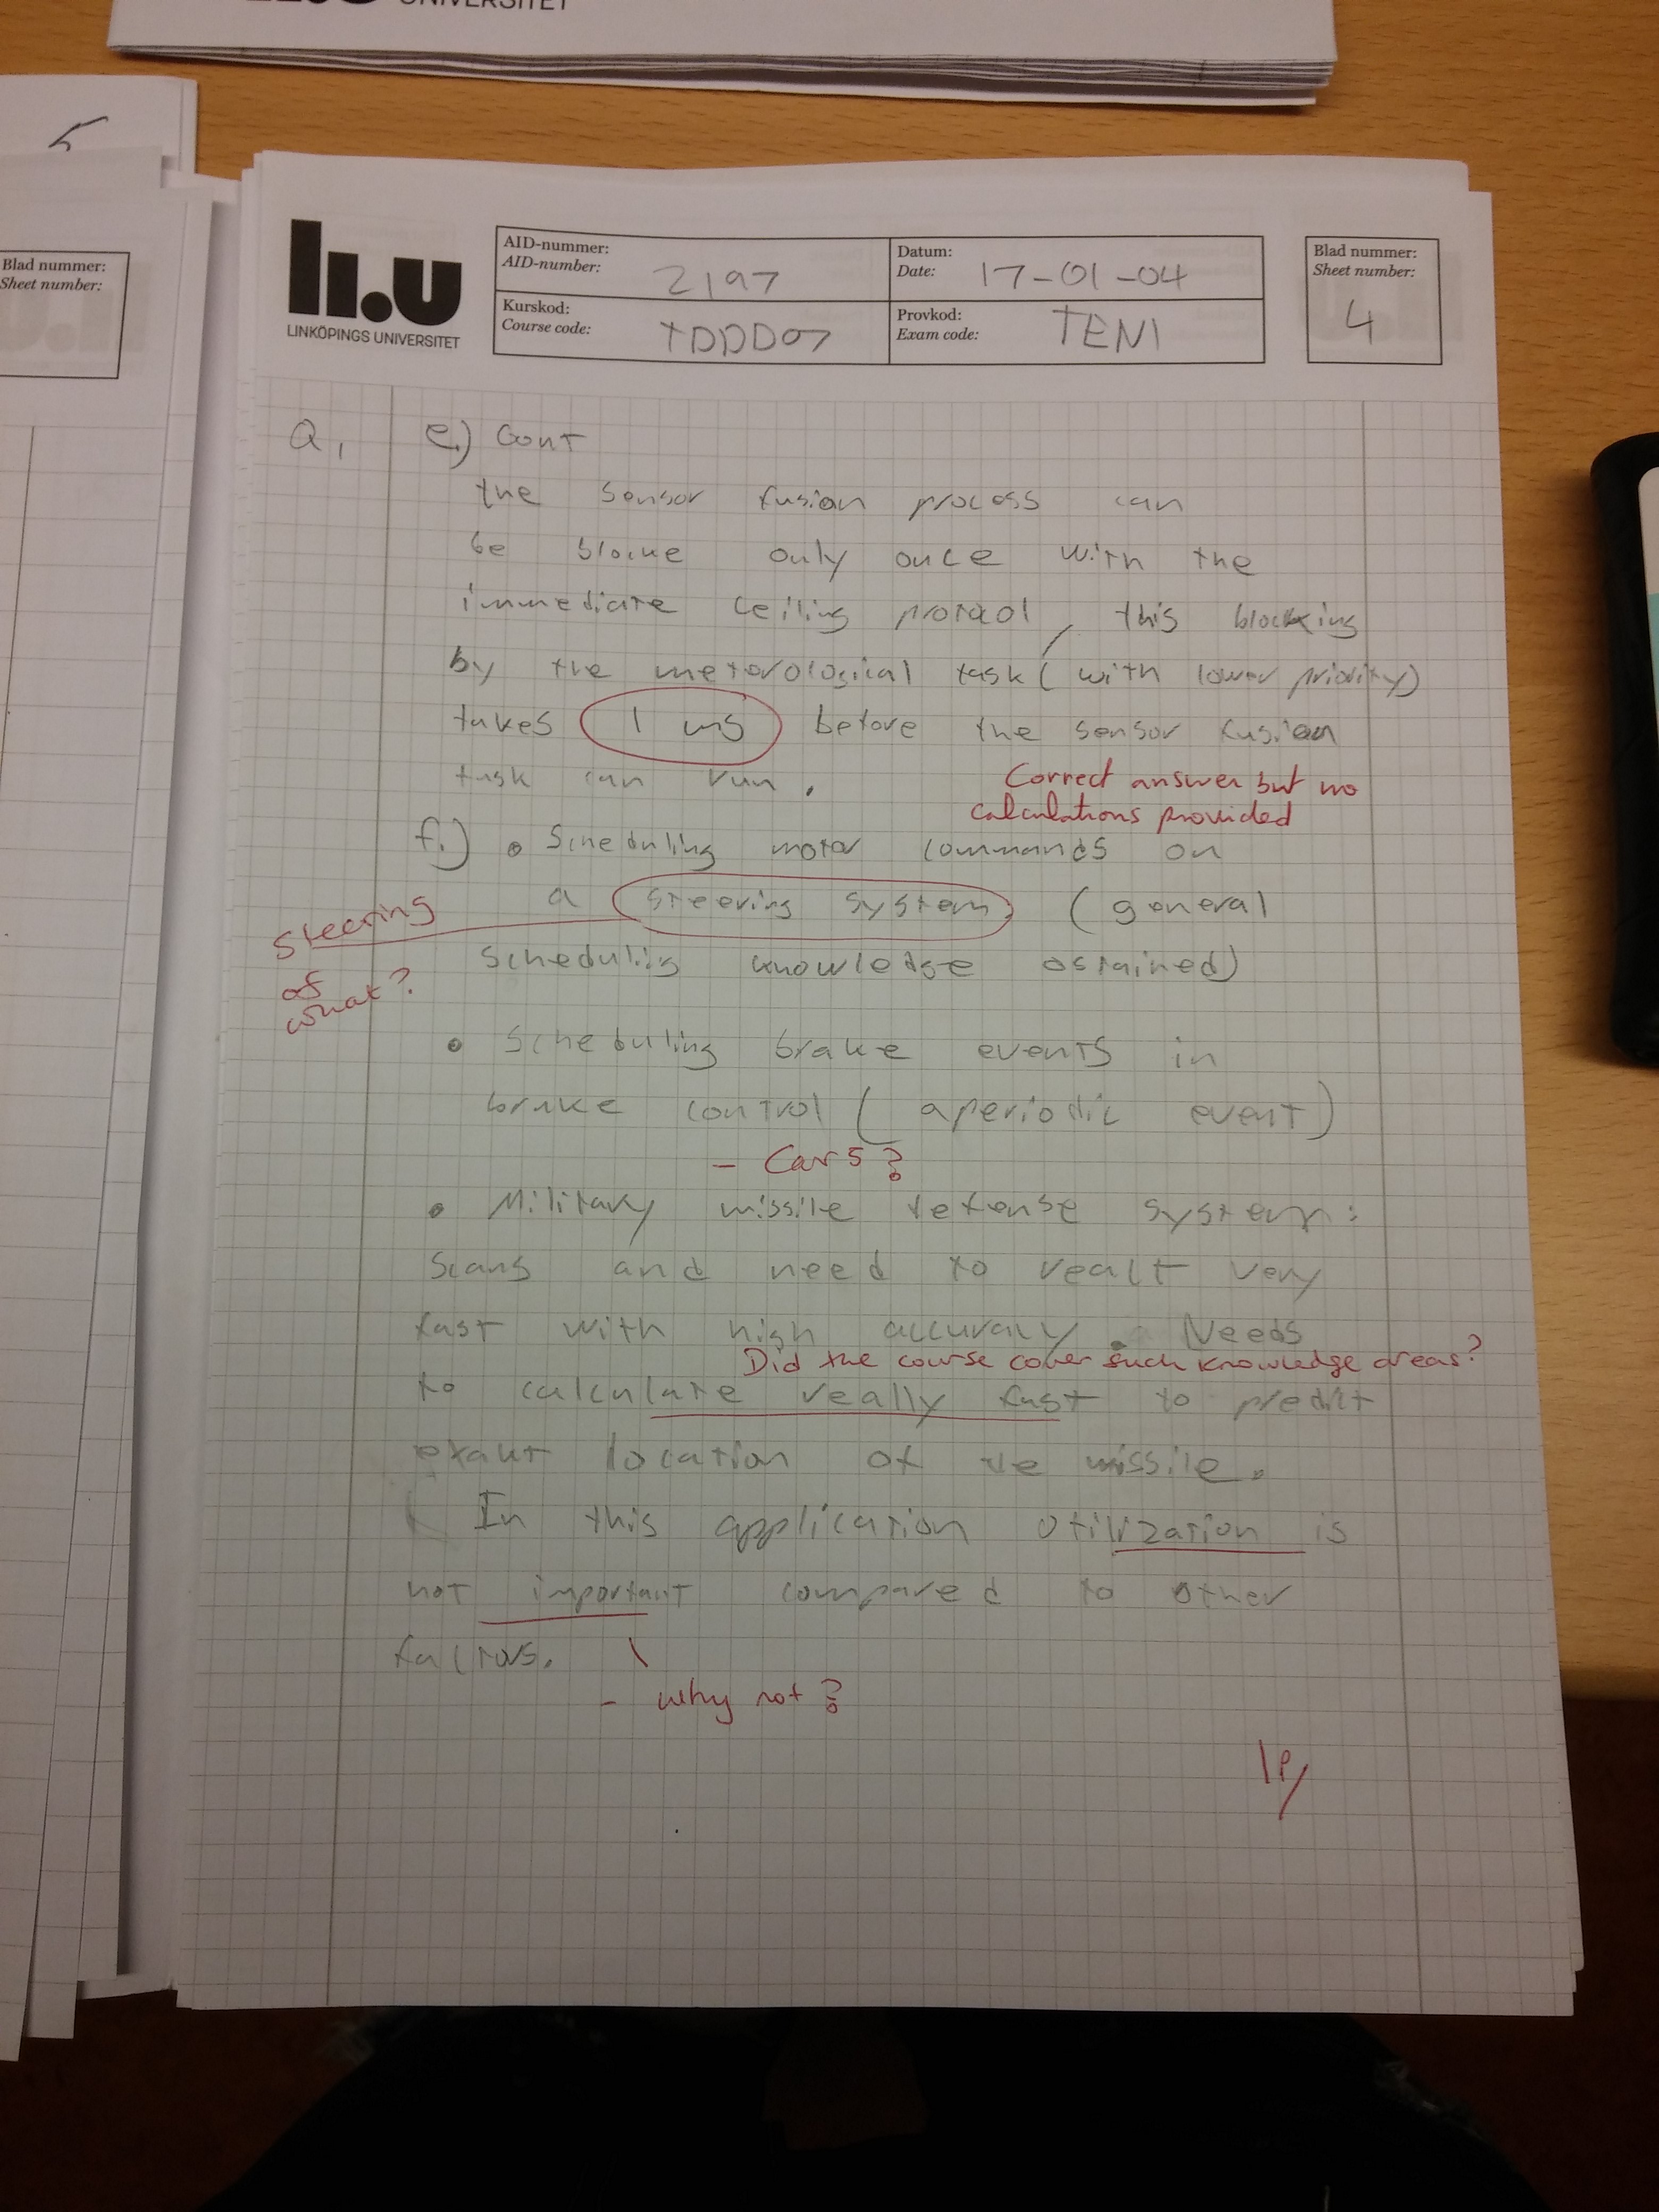 UNIVERSITET
5
Blad nummer:
Sheet number:
li.u
LINKÖPINGS UNIVERSITET
AID-nummer:
AID-number:
2197
Datum:
Date:
17-01-04
Blad nummer:
Sheet number:
4
Kurskod:
Course code:
TDDD07
Provkod:
Exam code:
TEN1
Q1 e.) Cont
the sensor fusion process can
be blocke only once with the
immediate ceiling protocol, this blocking
by the meterological task (with lower priority)
takes 1 ms before the sensor fusion
task can run.
Correct answer but no
calculations provided
f.) • Scheduling motor commands on
a steering system (general
Steering
of
what?
scheduling knowledge ostained)
• Scheduling brake events in
brake control (aperiodic event)
- Cars?
• Military missile defense system:
Scans and need to react very
fast with high accuracy. Needs
Did the course cover such knowledge areas?
to calculate really fast to predict
exakt location of te missile.
In this application utilization is
not important compared to other
factors.
- why not?
1p/